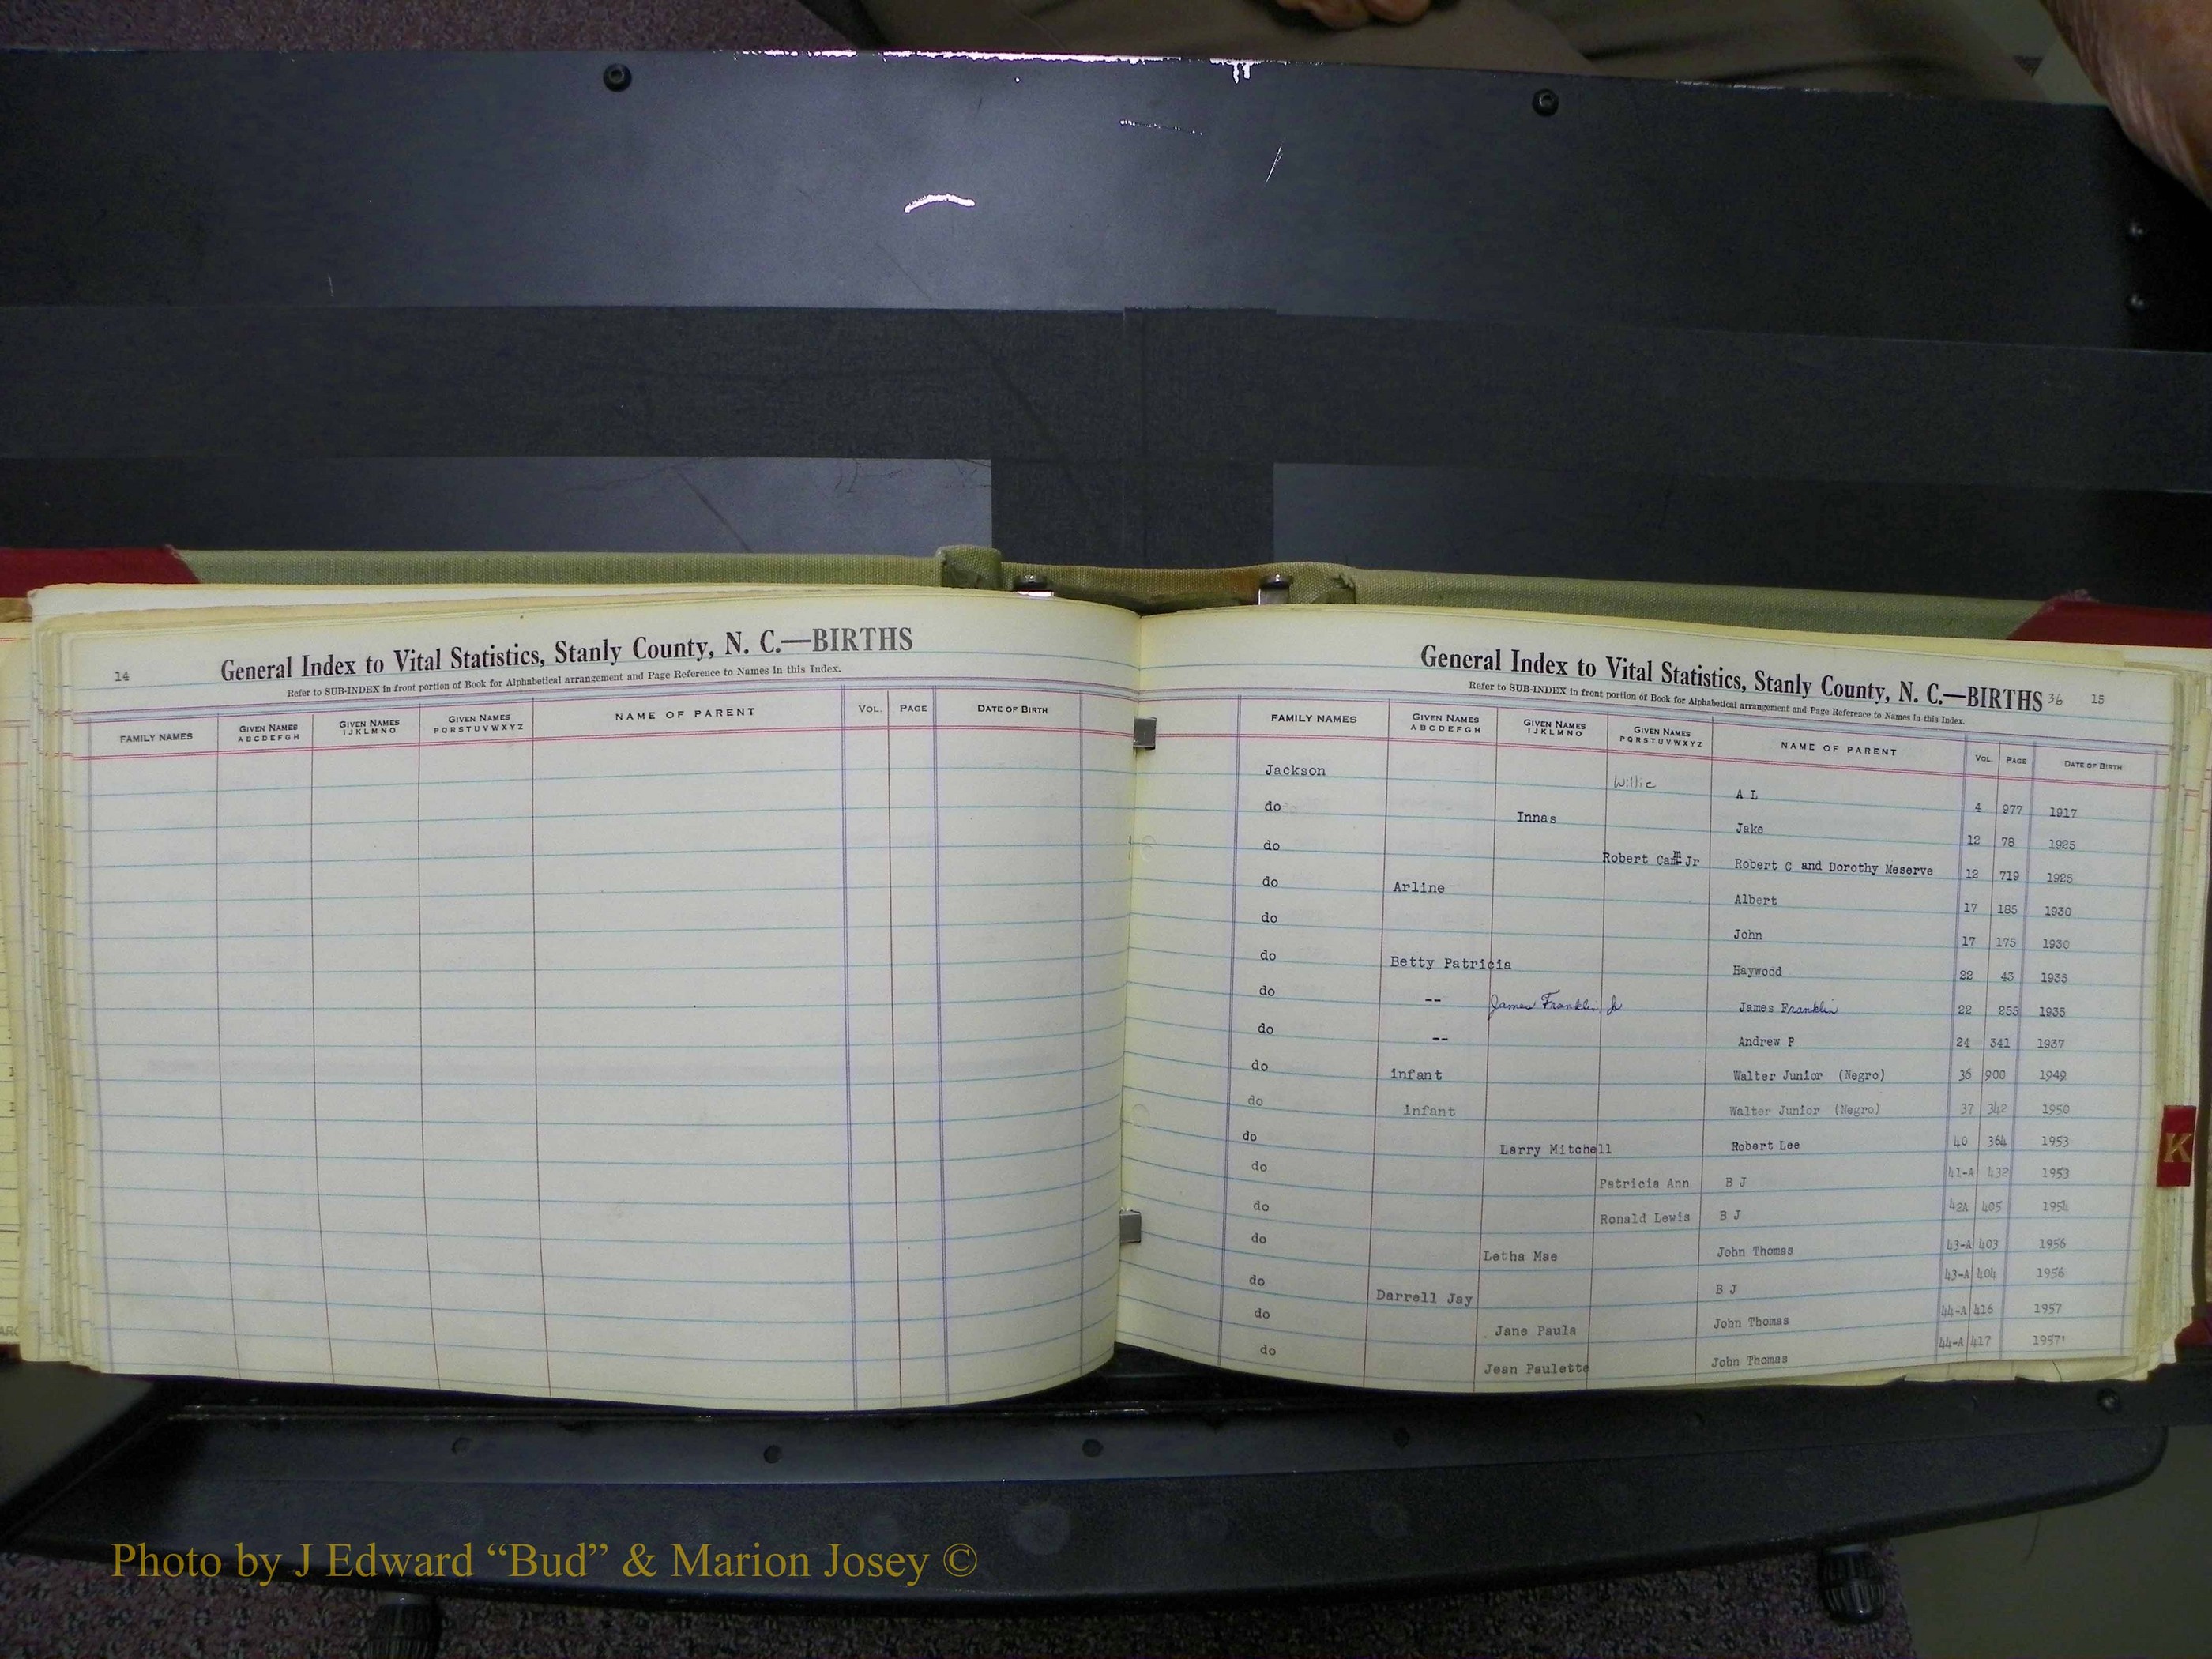 14
General Index to Vital Statistics, Stanly County, N. C.—BIRTHS
Refer to SUB-INDEX in front portion of Book for Alphabetical arrangement and Page Reference to Names in this Index.
FAMILY NAMES GIVEN NAMES ABCDEFGH GIVEN NAMES IJKLMNO GIVEN NAMES PQRSTUVWXYZ NAME OF PARENT VOL. PAGE DATE OF BIRTH
General Index to Vital Statistics, Stanly County, N. C.—BIRTHS 36 15
Refer to SUB-INDEX in front portion of Book for Alphabetical arrangement and Page Reference to Names in this Index.
FAMILY NAMES GIVEN NAMES ABCDEFGH GIVEN NAMES IJKLMNO GIVEN NAMES PQRSTUVWXYZ NAME OF PARENT VOL. PAGE DATE OF BIRTH
Jackson Willie A L 4 977 1917
do Innas Jake 12 78 1925
do Robert Cam Jr Robert C and Dorothy Meserve 12 719 1925
do Arline Albert 17 185 1930
do John 17 175 1930
do Betty Patricia Haywood 22 43 1935
do -- James Franklin Jr James Franklin 22 255 1935
do -- Andrew P 24 341 1937
do infant Walter Junior (Negro) 36 900 1949
do infant Walter Junior (Negro) 37 342 1950
do Larry Mitchell Robert Lee 40 364 1953
do Patricia Ann B J 41-A 432 1953
do Ronald Lewis B J 42A 405 1954
do Letha Mae John Thomas 43-A 403 1956
do Darrell Jay B J 43-A 404 1956
do Jane Paula John Thomas 44-A 416 1957
do Jean Paulette John Thomas 44-A 417 1957
K
Photo by J Edward “Bud” & Marion Josey ©